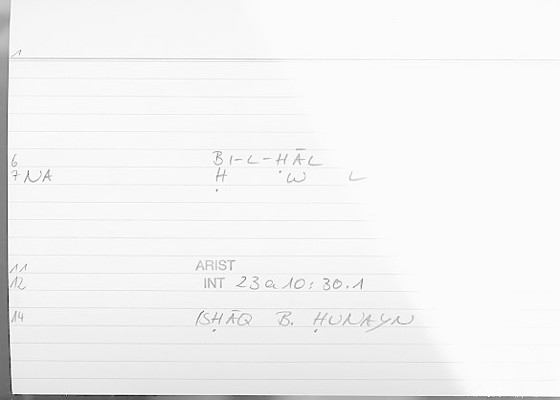 1
6 BI-L-ḤĀL
7 NA Ḥ W L
11 ARIST
12 INT 23a10; 30.1
14 ISḤĀQ B. ḤUNAYN